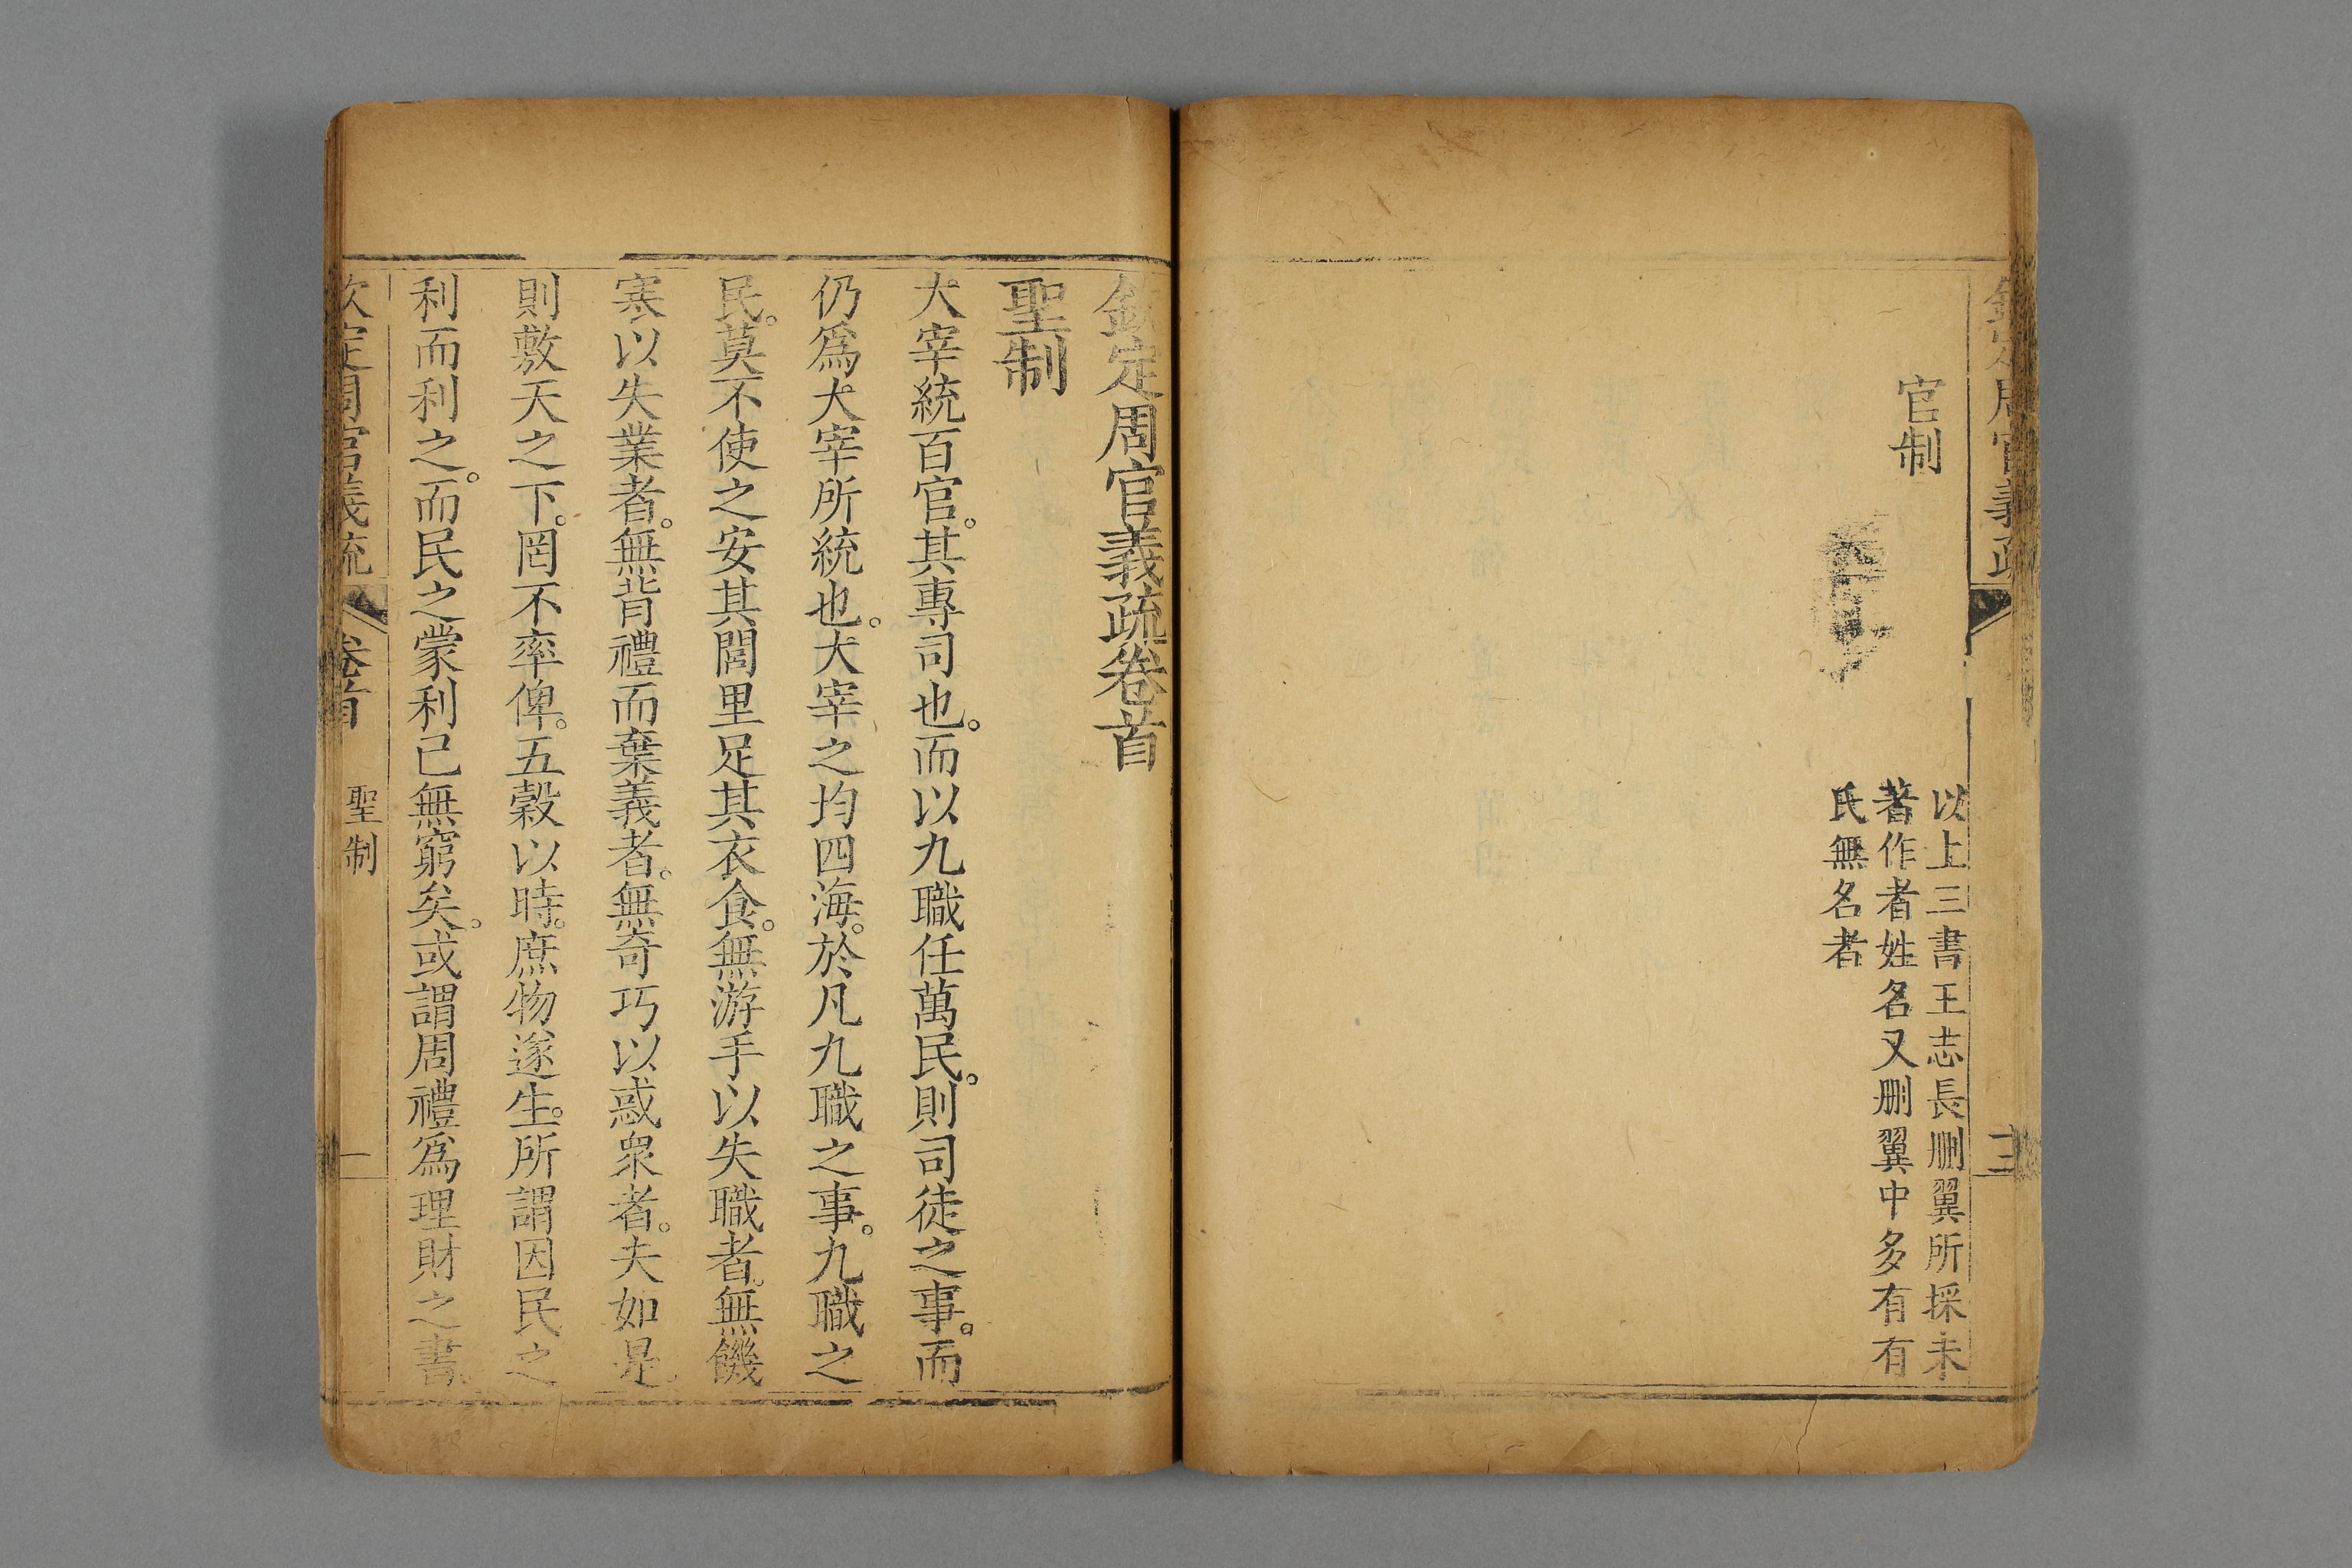 周官義疏
官制
以上三書王志長刪翼所採未
著作者姓名又刪翼中多有有
氏無名者
欽定周官義疏卷首
聖制
大宰統百官。其專司也。而以九職任萬民。則司徒之事。而
仍爲大宰所統也。大宰之均四海。於凡九職之事。九職之
民。莫不使之安其閭里足其衣食。無游手以失職者。無饑
寒以失業者。無背禮而棄義者。無奇巧以惑衆者。夫如是。
則敷天之下。罔不率俾。五穀以時。庶物遂生。所謂因民之
利而利之。而民之蒙利已無窮矣。或謂周禮爲理財之書。
欽定周官義疏 卷首 聖制 一